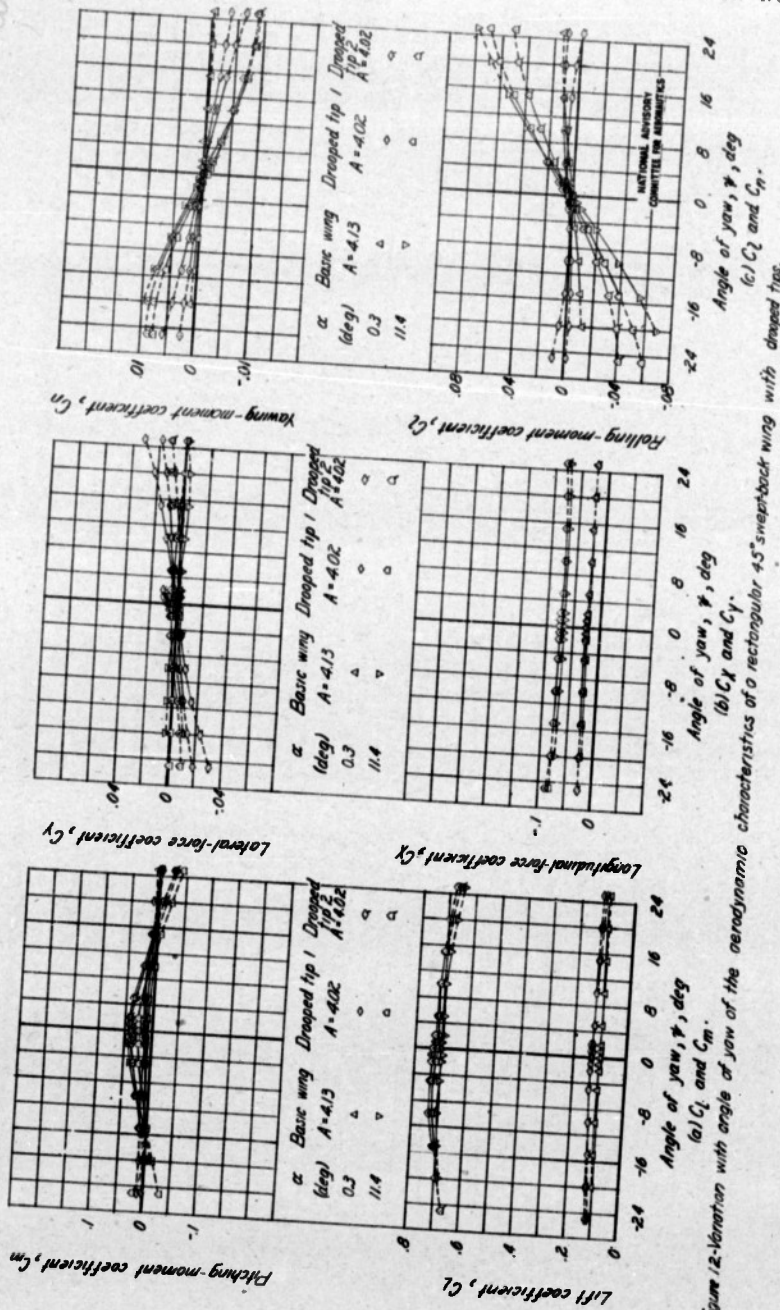 Pitching-moment coefficient, Cm
.1
0
-.1
α Basic wing Drooped tip 1 Drooped tip 2
(deg) A = 4.13 A = 4.02 A = 4.02
0.3
11.4
Lift coefficient, CL
.8
.6
.4
.2
0
-24 -16 -8 0 8 16 24
Angle of yaw, ψ, deg
(a) CL and Cm.
Lateral-force coefficient, CY
.04
0
-.04
α Basic wing Drooped tip 1 Drooped tip 2
(deg) A = 4.13 A = 4.02 A = 4.02
0.3
11.4
Longitudinal-force coefficient, CX
.1
0
-24 -16 -8 0 8 16 24
Angle of yaw, ψ, deg
(b) CX and CY.
Yawing-moment coefficient, Cn
.01
0
-.01
α Basic wing Drooped tip 1 Drooped tip 2
(deg) A = 4.13 A = 4.02 A = 4.02
0.3
11.4
Rolling-moment coefficient, Cl
.08
.04
0
-.04
-.08
NATIONAL ADVISORY
COMMITTEE FOR AERONAUTICS
-24 -16 -8 0 8 16 24
Angle of yaw, ψ, deg
(c) Cl and Cn.
ure 12.-Variation with angle of yaw of the aerodynamic characteristics of a rectangular 45° swept-back wing with drooped tips.